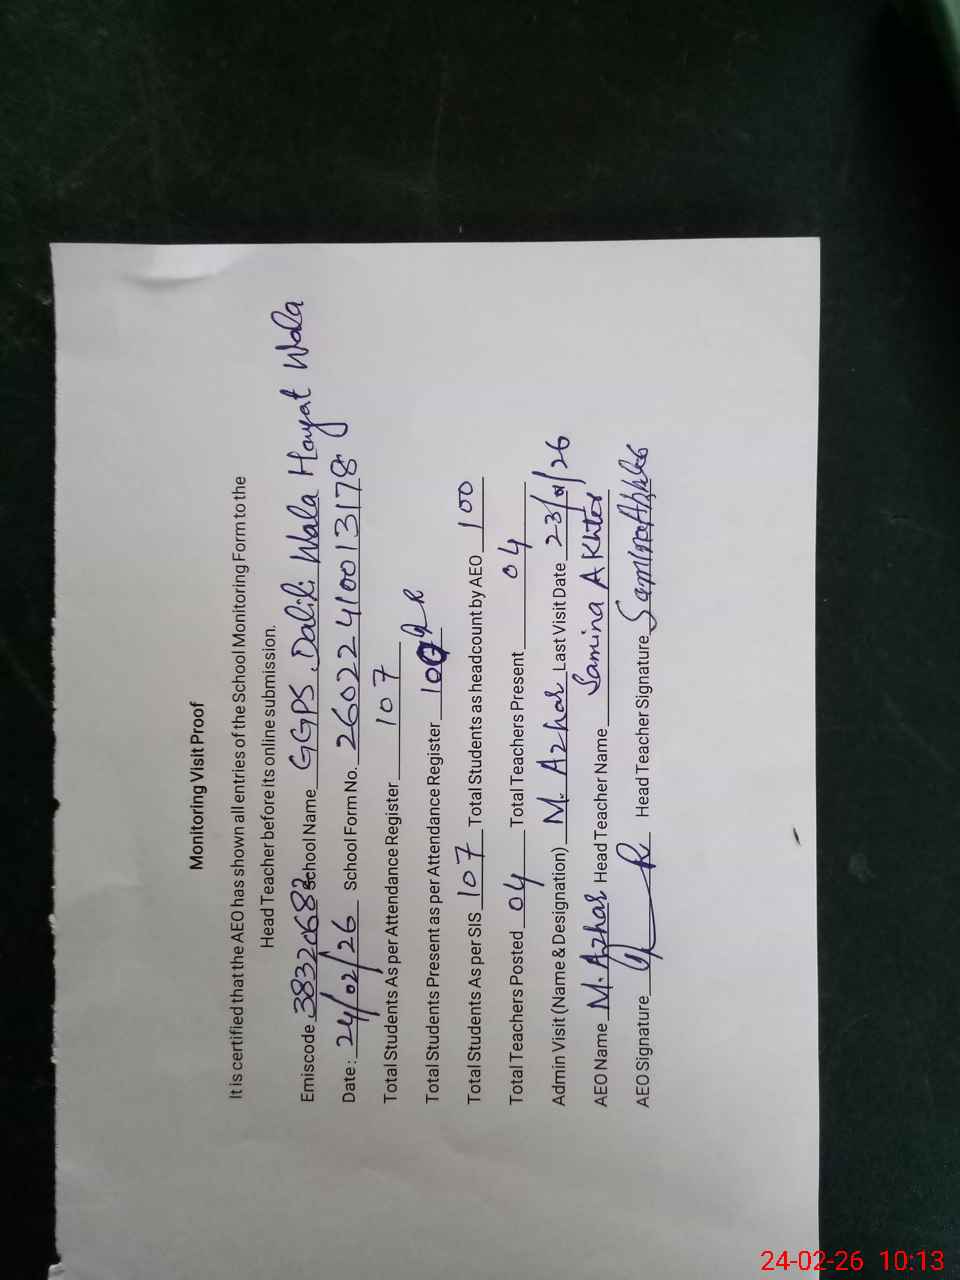 Monitoring Visit Proof
It is certified that the AEO has shown all entries of the School Monitoring Form to the
Head Teacher before its online submission.
Emiscode 38320682 School Name GGPS Dalili Wala Hayat Wala
Date: 24/02/26 School Form No. 26022410013178
Total Students As per Attendance Register 107
Total Students Present as per Attendance Register 100
Total Students As per SIS 107 Total Students as headcount by AEO 100
Total Teachers Posted 04 Total Teachers Present 04
Admin Visit (Name & Designation) M. Azhar Last Visit Date 23/ /26
AEO Name M. Azhar Head Teacher Name Samina Akhter
AEO Signature Head Teacher Signature Samina
24-02-26 10:13